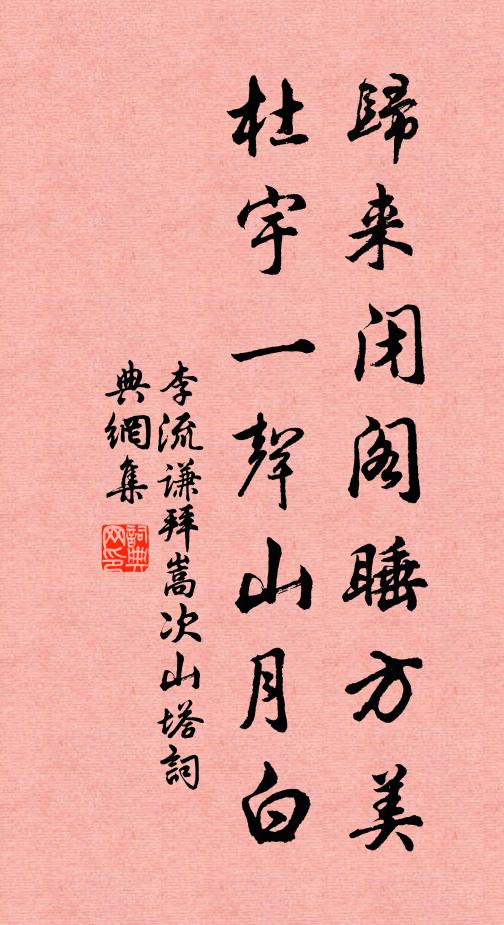 歸来闭阁睡方美
杜宇一聲山月白
李流谦拜嵩次山塔詞
典網集
詞典
网印